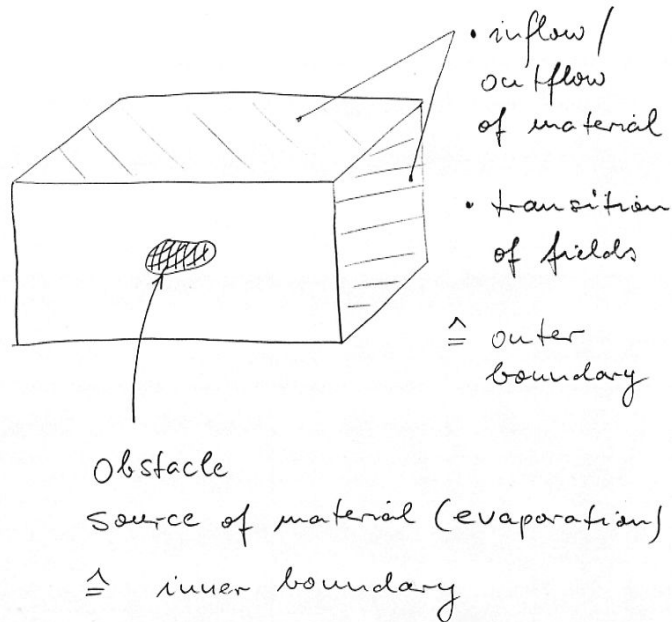 • inflow /
outflow
of material
• transition
of fields
≙ outer
boundary
obstacle
source of material (evaporation)
≙ inner boundary